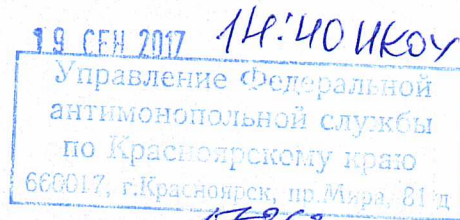 19 СЕН 2017 14:40
Управление Федеральной
антимонопольной службы
по Красноярскому краю
660017, г.Красноярск, пр.Мира, 81 д